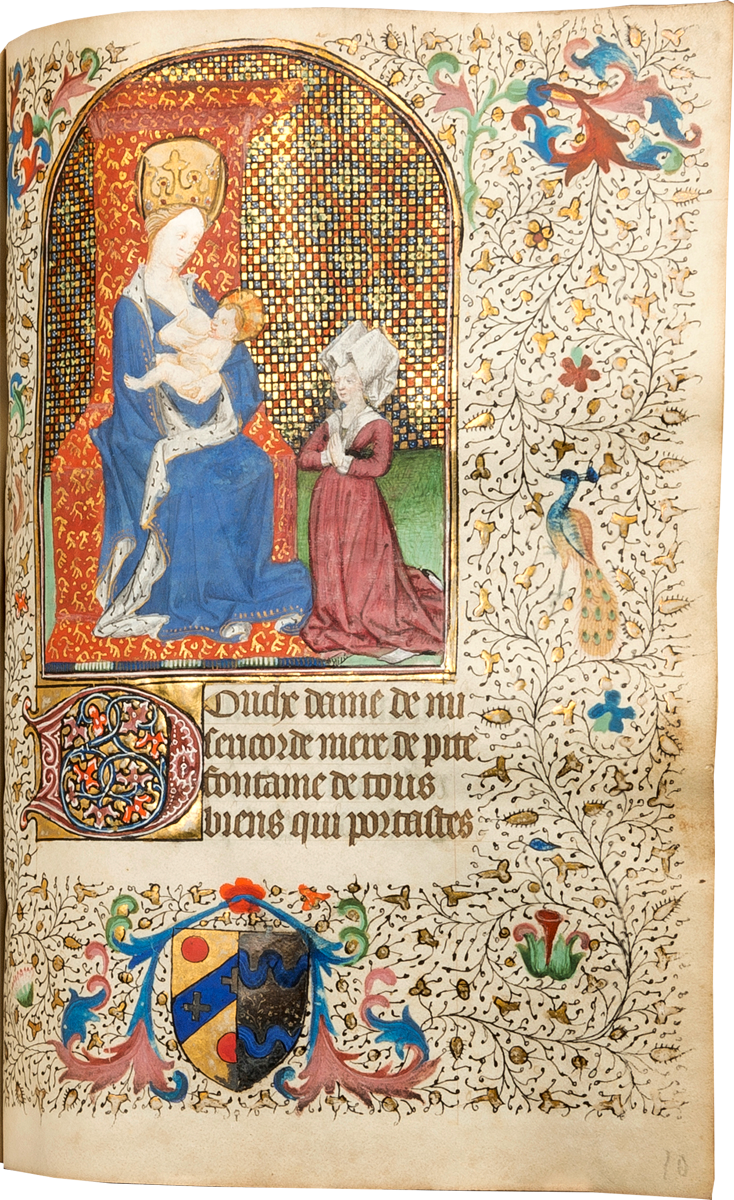 Doulx dame de mi
sericorde mere de pite
fontaine de tous
biens qui portastes
10